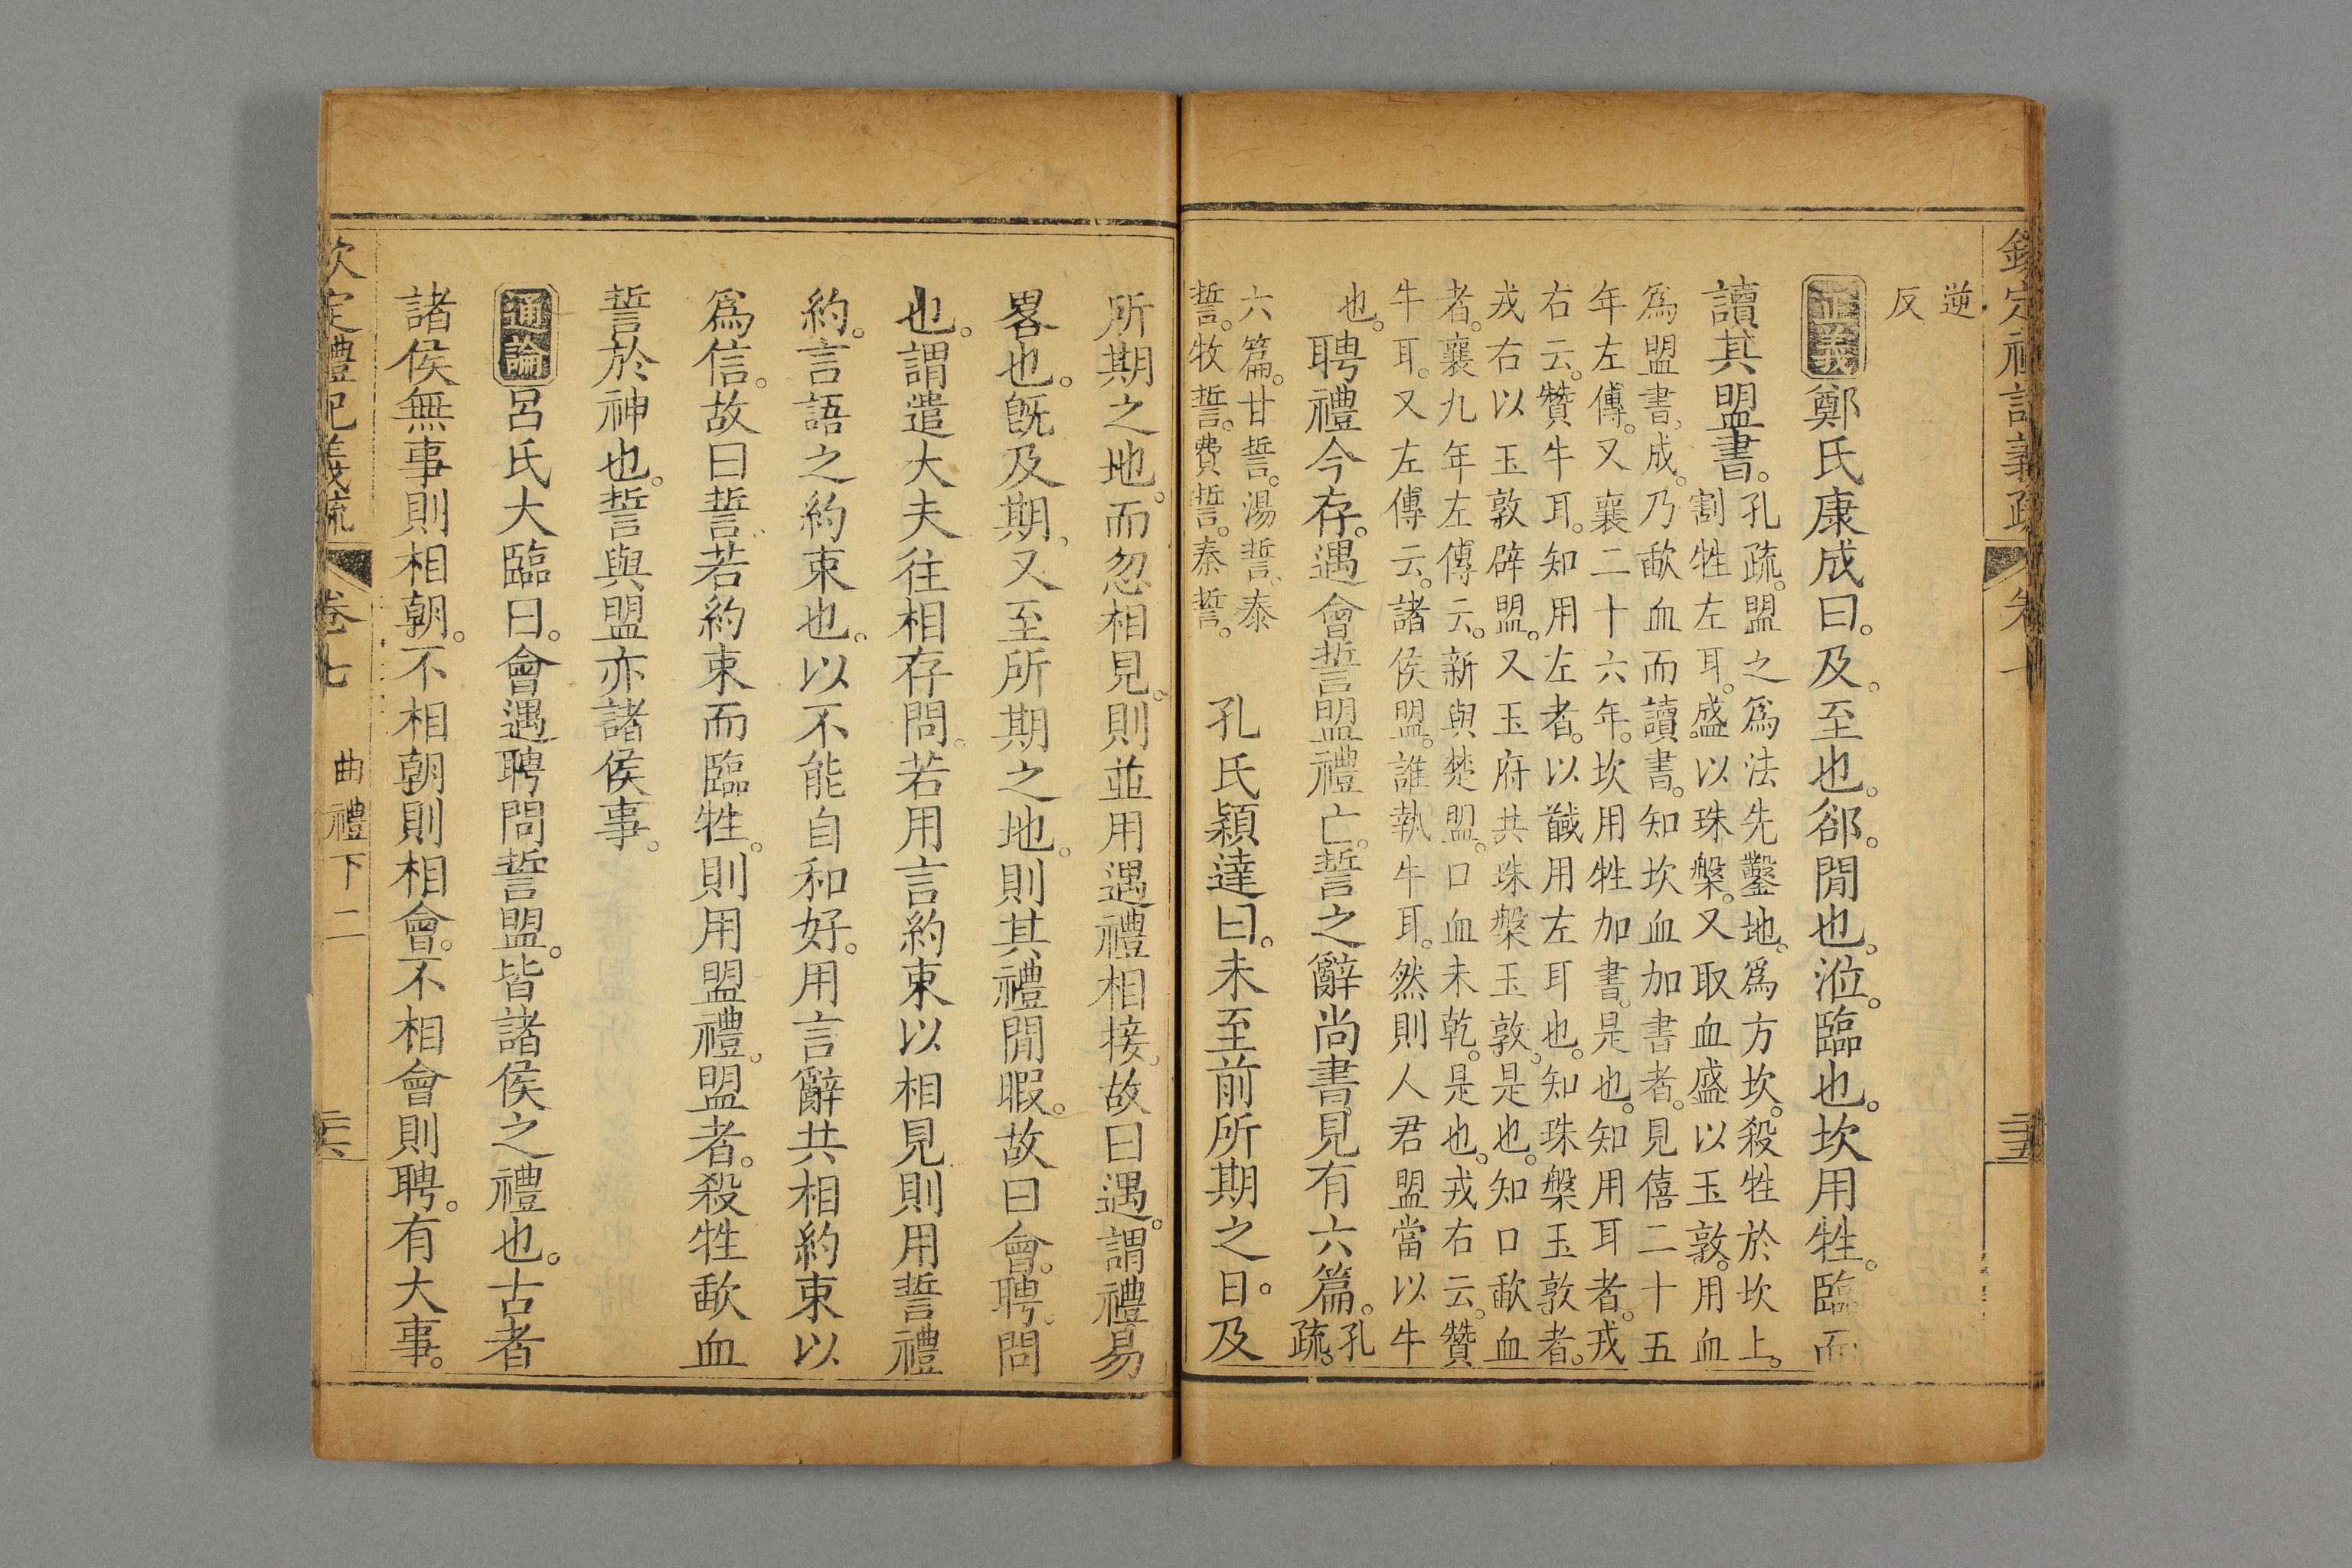 欽定禮記義疏 卷七 二十五
逆
反
正義鄭氏康成曰。及。至也。郤。閒也。涖。臨也。坎用牲。臨而
讀其盟書。
孔疏。盟之爲法。先鑿地。爲方坎。殺牲於坎上。
割牲左耳。盛以珠槃。又取血盛以玉敦。用血
爲盟書。成。乃歃血而讀書。知坎血加書者。見僖二十五
年左傳。又襄二十六年。坎用牲加書。是也。知用耳者。戎
右云。贊牛耳。知用左者。以馘用左耳也。知珠槃玉敦者。
戎右以玉敦辟盟。又玉府共珠槃玉敦。是也。知口歃血
者。襄九年左傳云。新與楚盟。口血未乾。是也。戎右云。贊
牛耳。又左傳云。諸侯盟。誰執牛耳。然則人君盟當以牛
也。
聘禮今存。遇會誓盟禮亡。誓之辭尚書見有六篇。
孔
疏。
六篇。甘誓。湯誓。泰
誓。牧誓。費誓。秦誓。
孔氏穎達曰。未至前所期之日。及
所期之地。而忽相見。則並用遇禮相接。故曰遇。謂禮易
畧也。旣及期。又至所期之地。則其禮閒暇。故曰會。聘。問
也。謂遣大夫往相存問。若用言約束以相見則用誓禮
約。言語之約束也。以不能自和好。用言辭共相約束以
爲信。故曰誓若約束而臨牲。則用盟禮。盟者。殺牲歃血
誓於神也。誓與盟亦諸侯事。
通論呂氏大臨曰。會遇聘問誓盟。皆諸侯之禮也。古者
諸侯無事則相朝。不相朝則相會。不相會則聘。有大事。
欽定禮記義疏 卷七 曲禮下二 二十六